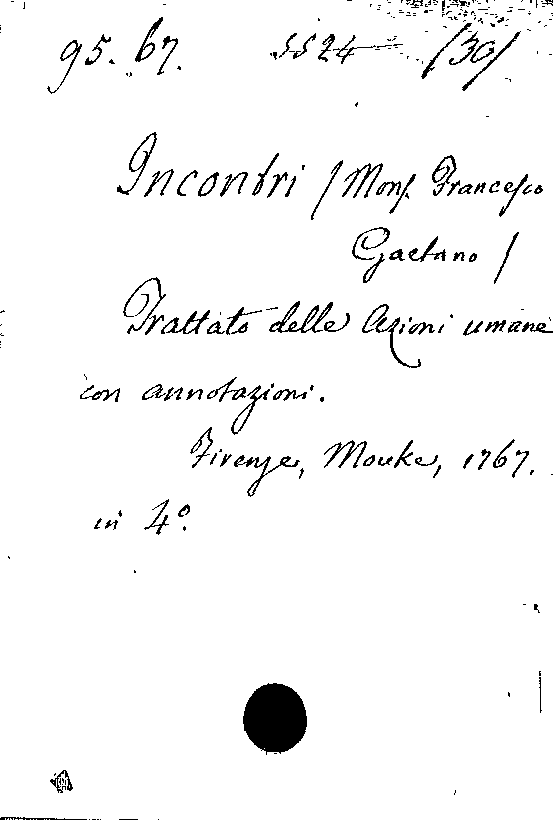 95. 67. 5524 (30)
Incontri / Mons. Francesco
Gaetano /
Trattato delle Azioni umane
con annotazioni.
Firenze, Mouke, 1767.
in 4º.